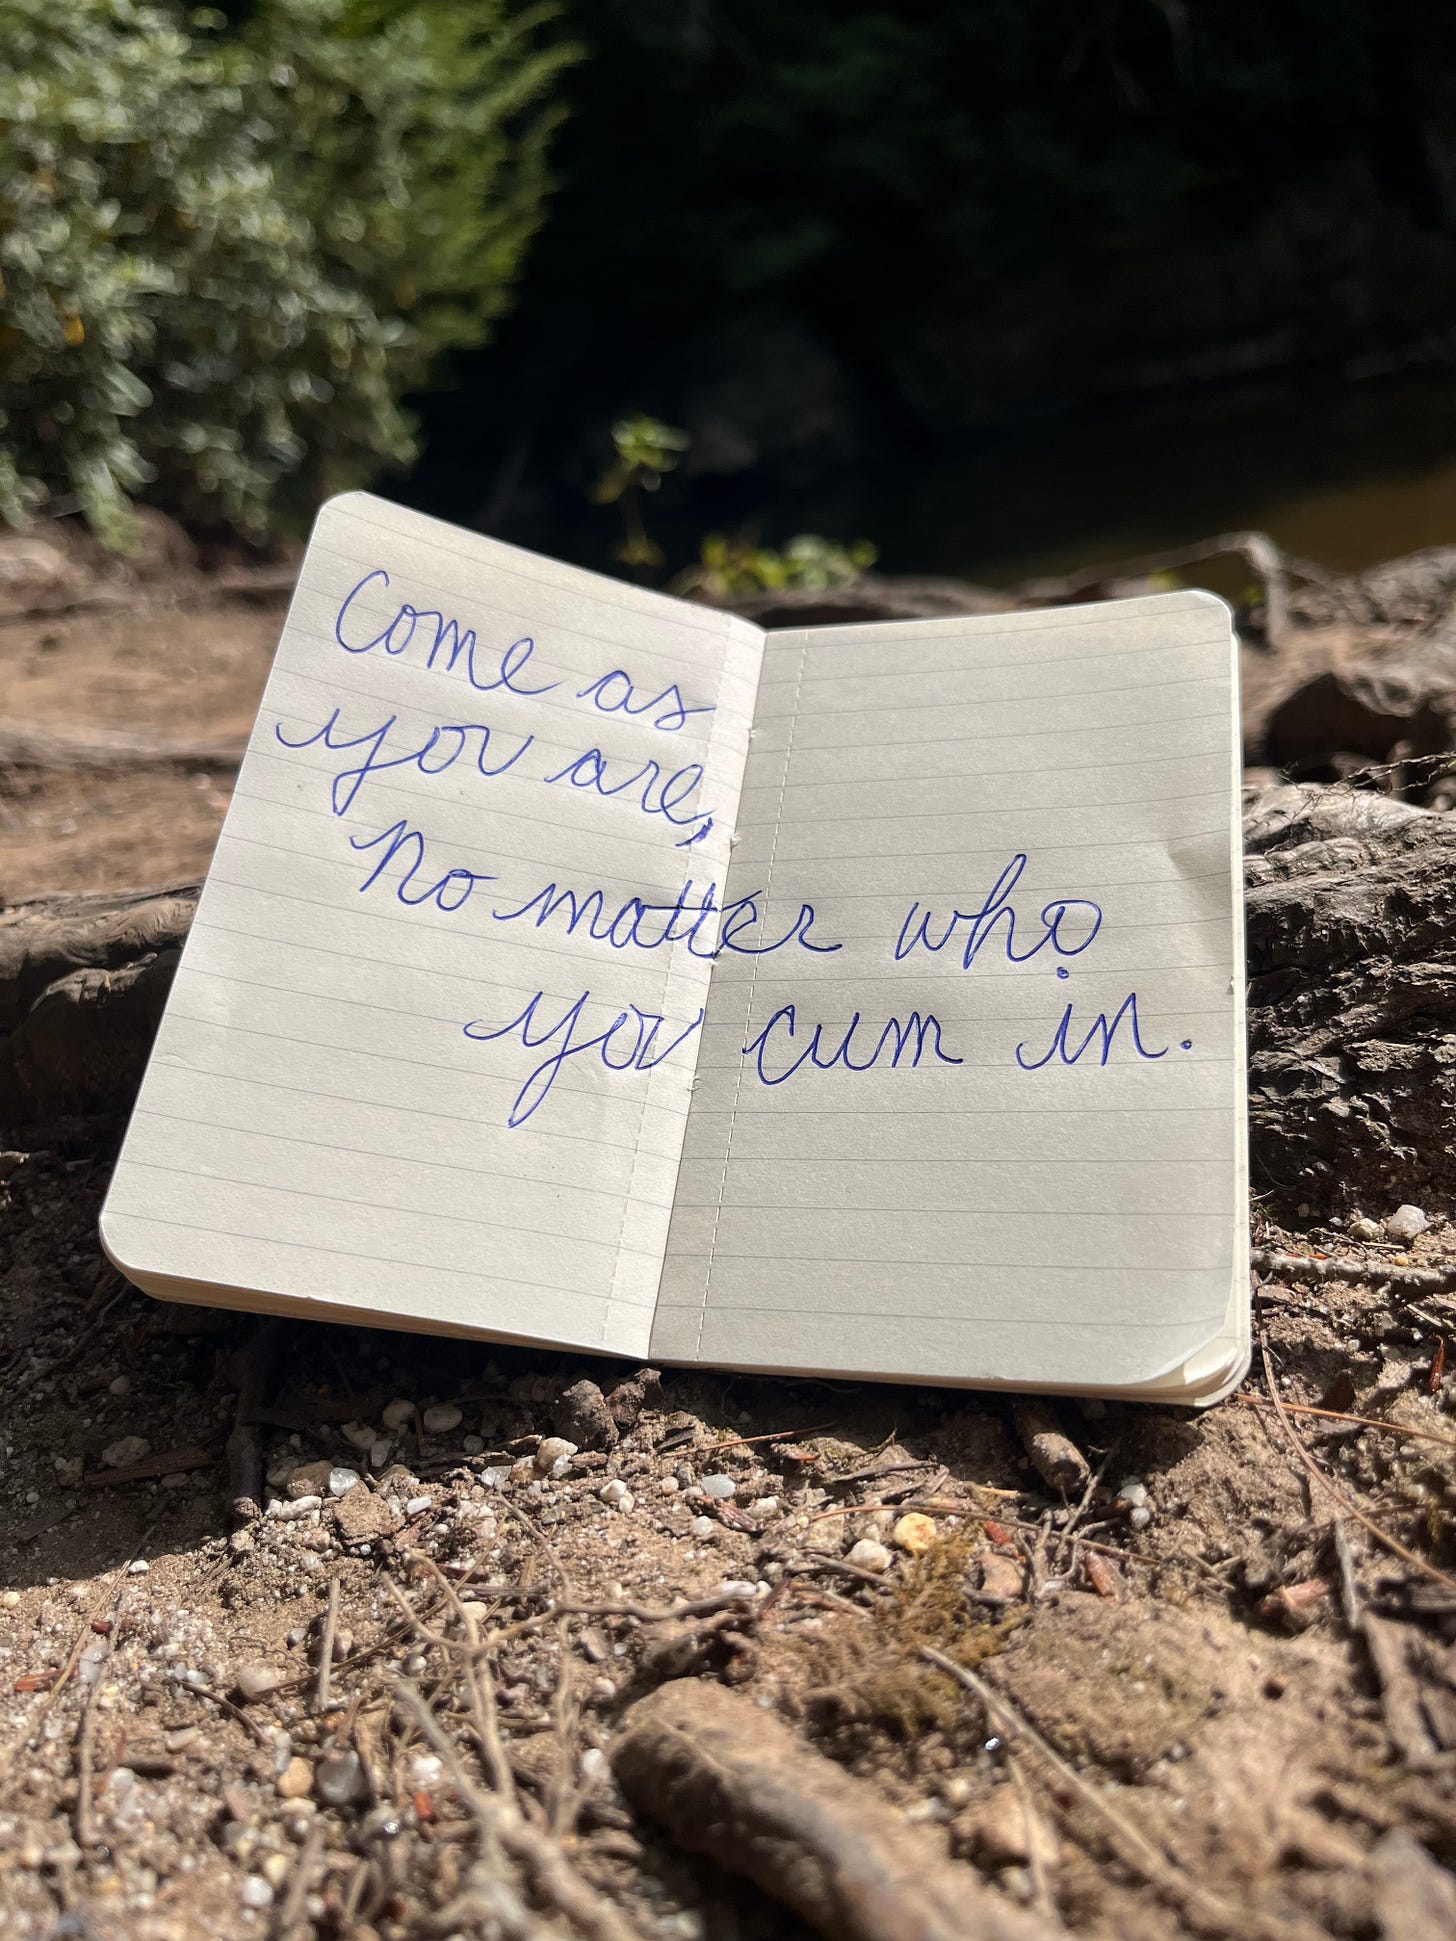 Come as
you are,
no matter who
you cum in.